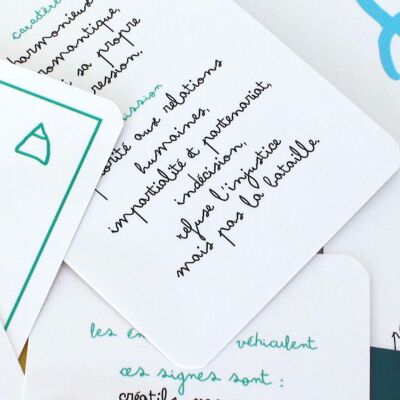 caractèr
harmonieux
romantique,
sa propre
ression.
ission
orité aux relations
humaines,
impartialité et partenariat,
indécision,
refuse l'injustice
mais pas la bataille.
les én véhiculent
ces signes sont :